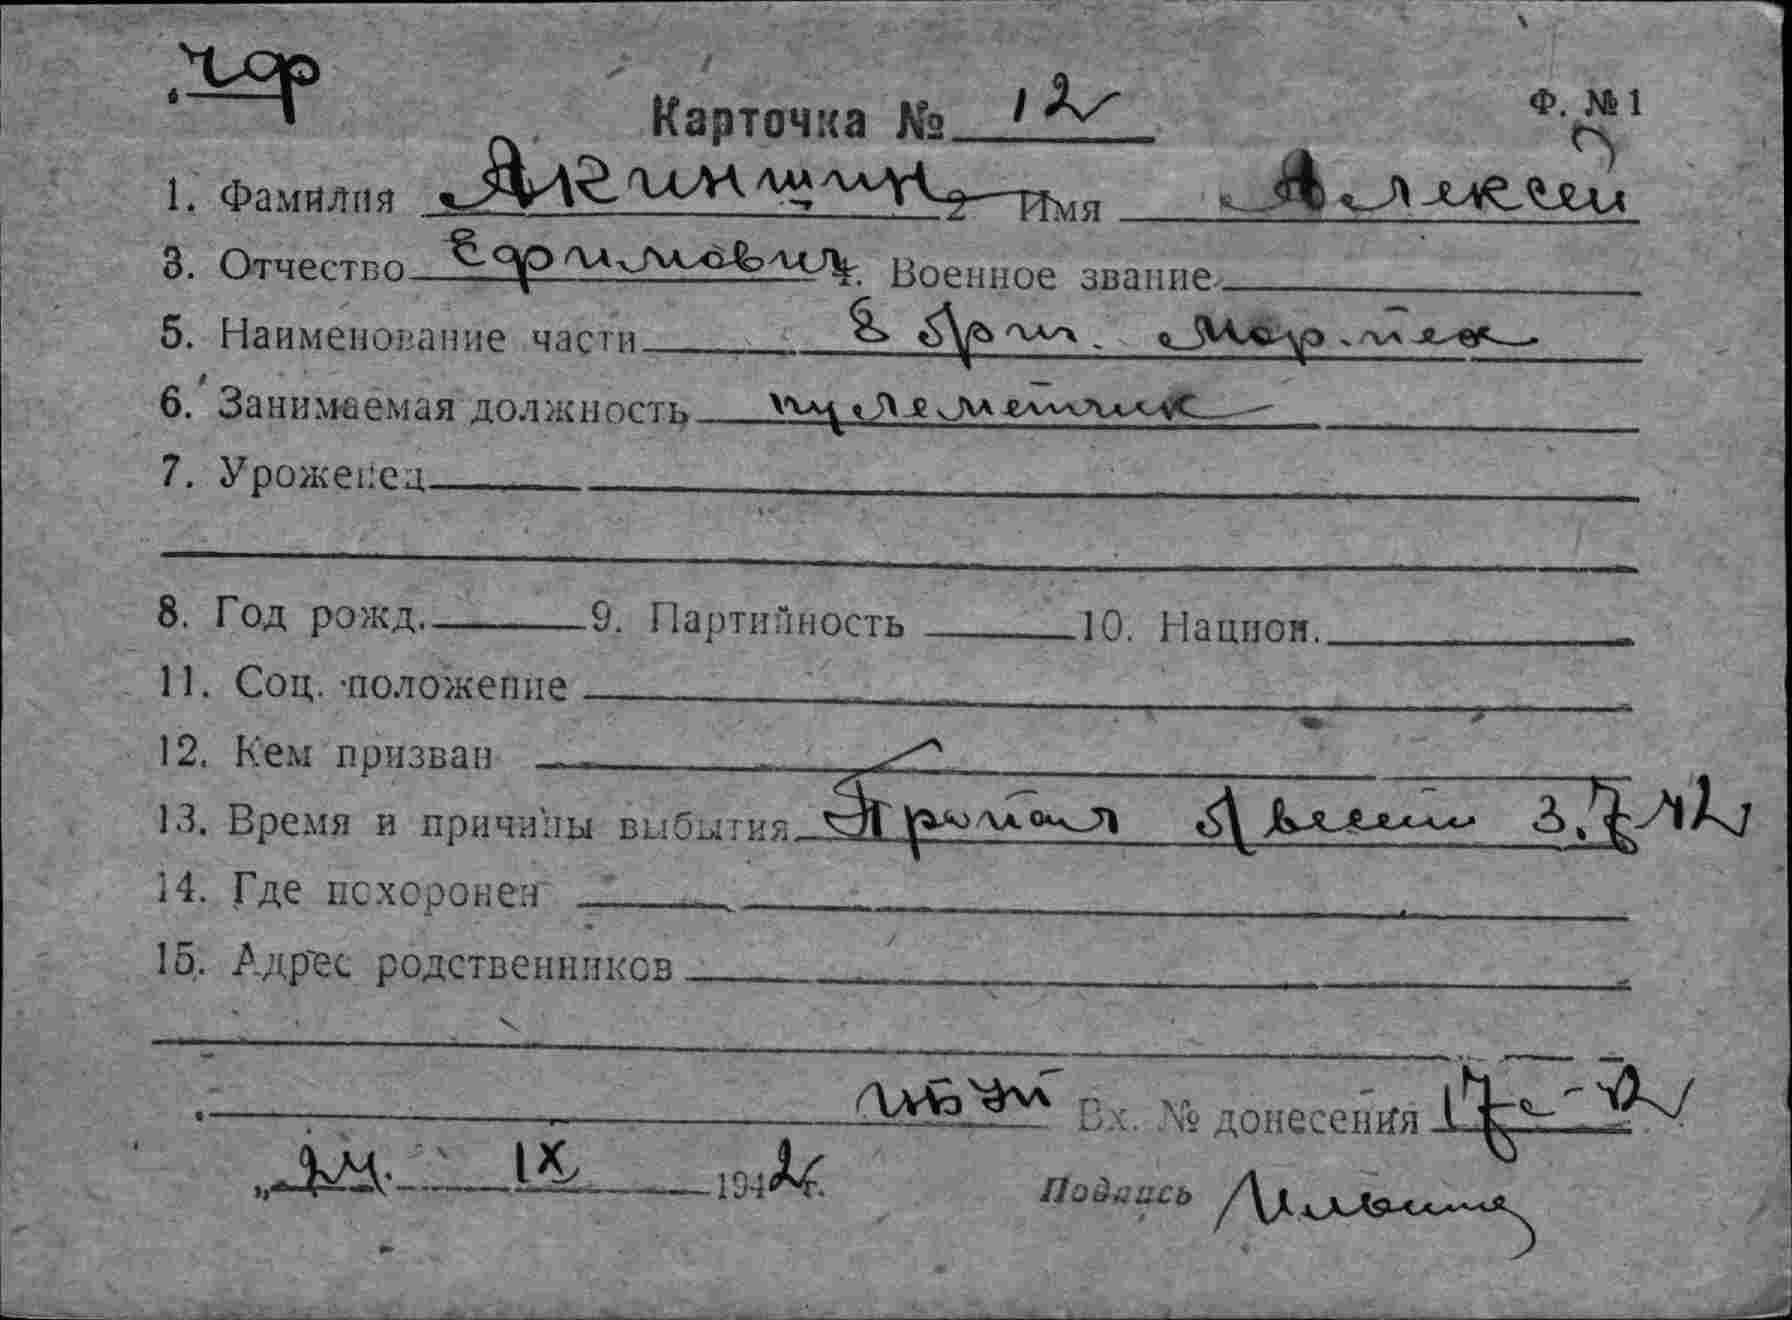 чф
Карточка № 12 Ф. № 1
1. Фамилия Акиншин 2 Имя Алексей
3. Отчество Ефимович 4. Военное звание
5. Наименование части 8 Арт. Мор. пех
6. Занимаемая должность пулеметчик
7. Уроженец
8. Год рожд. 9. Партийность 10. Национ.
11. Соц. положение
12. Кем призван
13. Время и причины выбытия Пропал 3.7.42
14. Где похоронен
15. Адрес родственников
Вх. № донесения 17
„24. IX 1942г. Подпись